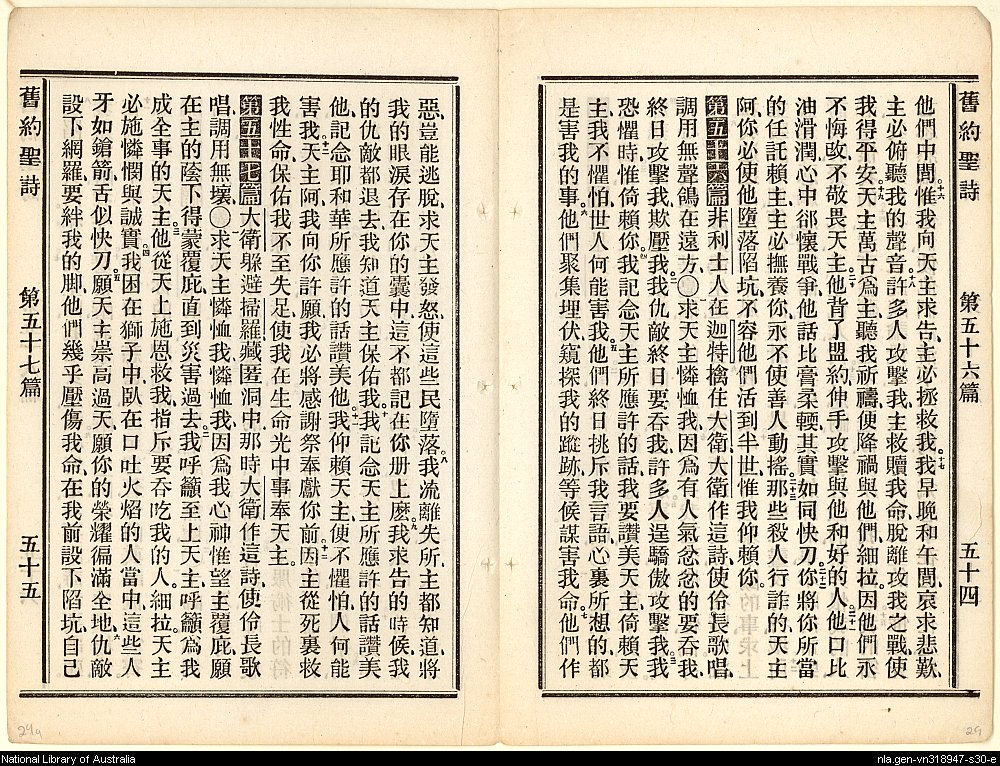 舊約聖詩 第五十六篇 五十四
他們中間惟我向天主求告主必拯救我我早晚和午間哀求悲歎
主必俯聽我的聲音許多人攻擊我主救贖我命脫離攻我之戰使
我得平安天主萬古爲主聽我祈禱便降禍與他們細拉因他們永
不悔改不敬畏天主他背了盟約伸手攻擊與他和好的人他口比
油滑潤心中郤懷戰爭他話比膏柔輭其實如同快刀你將你所當
的任託賴主主必撫養你永不使善人動搖那些殺人行詐的天主
阿你必使他墮落陷坑不容他們活到半世惟我仰賴你
第五十六篇非利士人在迦特擒住大衛大衛作這詩使伶長歌唱
調用無聲鴿在遠方〇求天主憐恤我因爲有人氣忿忿的要吞我
終日攻擊我欺壓我我仇敵終日要吞我許多人逞驕傲攻擊我我
恐懼時惟倚賴你我記念天主所應許的話我要讚美天主倚賴天
主我不懼怕世人何能害我他們終日挑斥我言語心裏所想的都
是害我的事他們聚集埋伏窺探我的蹤跡等候謀害我命他們作
惡豈能逃脫求天主發怒使這些民墮落我流離失所主都知道將
我的眼淚存在你的囊中這不都記在你册上麽我求告的時候我
的仇敵都退去我知道天主保佑我我記念天主所應許的話讚美
他記念耶和華所應許的話讚美他我仰賴天主便不懼怕人何能
害我天主阿我向你許願我必將感謝祭奉獻你前因主從死裏救
我性命保佑我不至失足使我在生命光中事奉天主
第五十七篇大衛躲避掃羅藏匿洞中那時大衛作這詩使伶長歌
唱調用無壞〇求天主憐恤我憐恤我因爲我心神惟望主覆庇願
在主的蔭下得蒙覆庇直到災害過去我呼籲至上天主呼籲爲我
成全事的天主他從天上施恩救我指斥要吞吃我的人細拉天主
必施憐憫與誠實我困在獅子中臥在口吐火焰的人當中這些人
牙如鎗箭舌似快刀願天主崇高過天願你的榮耀徧滿全地仇敵
設下網羅要絆我的脚他們幾乎壓傷我命在我前設下陷坑自己
舊約聖詩 第五十七篇 五十五
29a
29
National Library of Australia
nla.gen-vn318947-s30-e